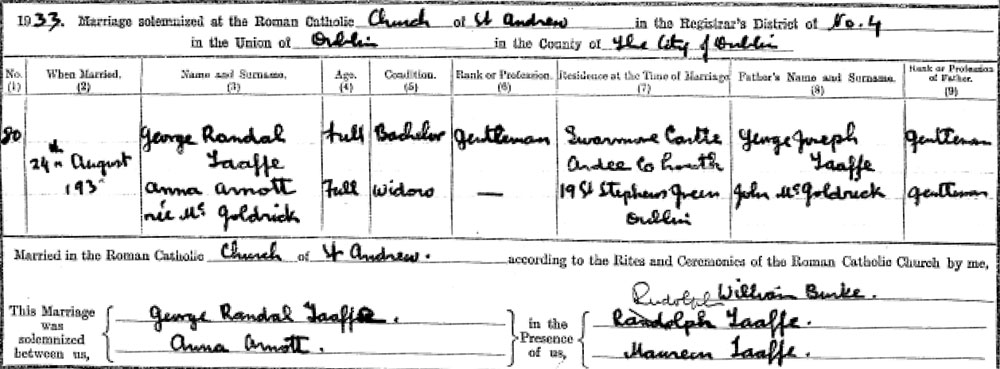 1933. Marriage solemnized at the Roman Catholic Church of St Andrew in the Registrar's District of No. 4
in the Union of Dublin in the County of The City of Dublin
No. When Married. Name and Surname. Age. Condition. Rank or Profession. Residence at the Time of Marriage. Father's Name and Surname. Rank or Profession of Father.
(1) (2) (3) (4) (5) (6) (7) (8) (9)
80 24th August 193 George Randal Taaffe Full Bachelor Gentleman Swarmore Castle Ardee Co Louth George Joseph Taaffe Gentleman
Anna Arnott née McGoldrick Full Widow — 19 St Stephens Green Dublin John McGoldrick Gentleman
Married in the Roman Catholic Church of St Andrew. according to the Rites and Ceremonies of the Roman Catholic Church by me,
William Burke.
This Marriage was solemnized between us, George Randal Taaffe. Anna Arnott. in the Presence of us, Rudolph Randolph Taaffe. Maureen Taaffe.